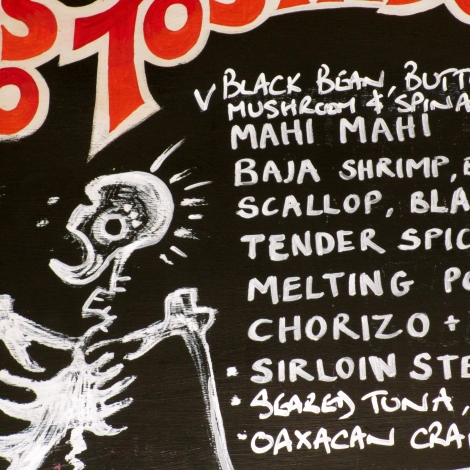 V BLACK BEAN BUTT
MUSHROOM & SPINA
MAHI MAHI
BAJA SHRIMP,
SCALLOP, BLA
TENDER SPIC
MELTING PO
CHORIZO +
• SIRLOIN STE
• SEARED TUNA,
• OAXACAN CRA